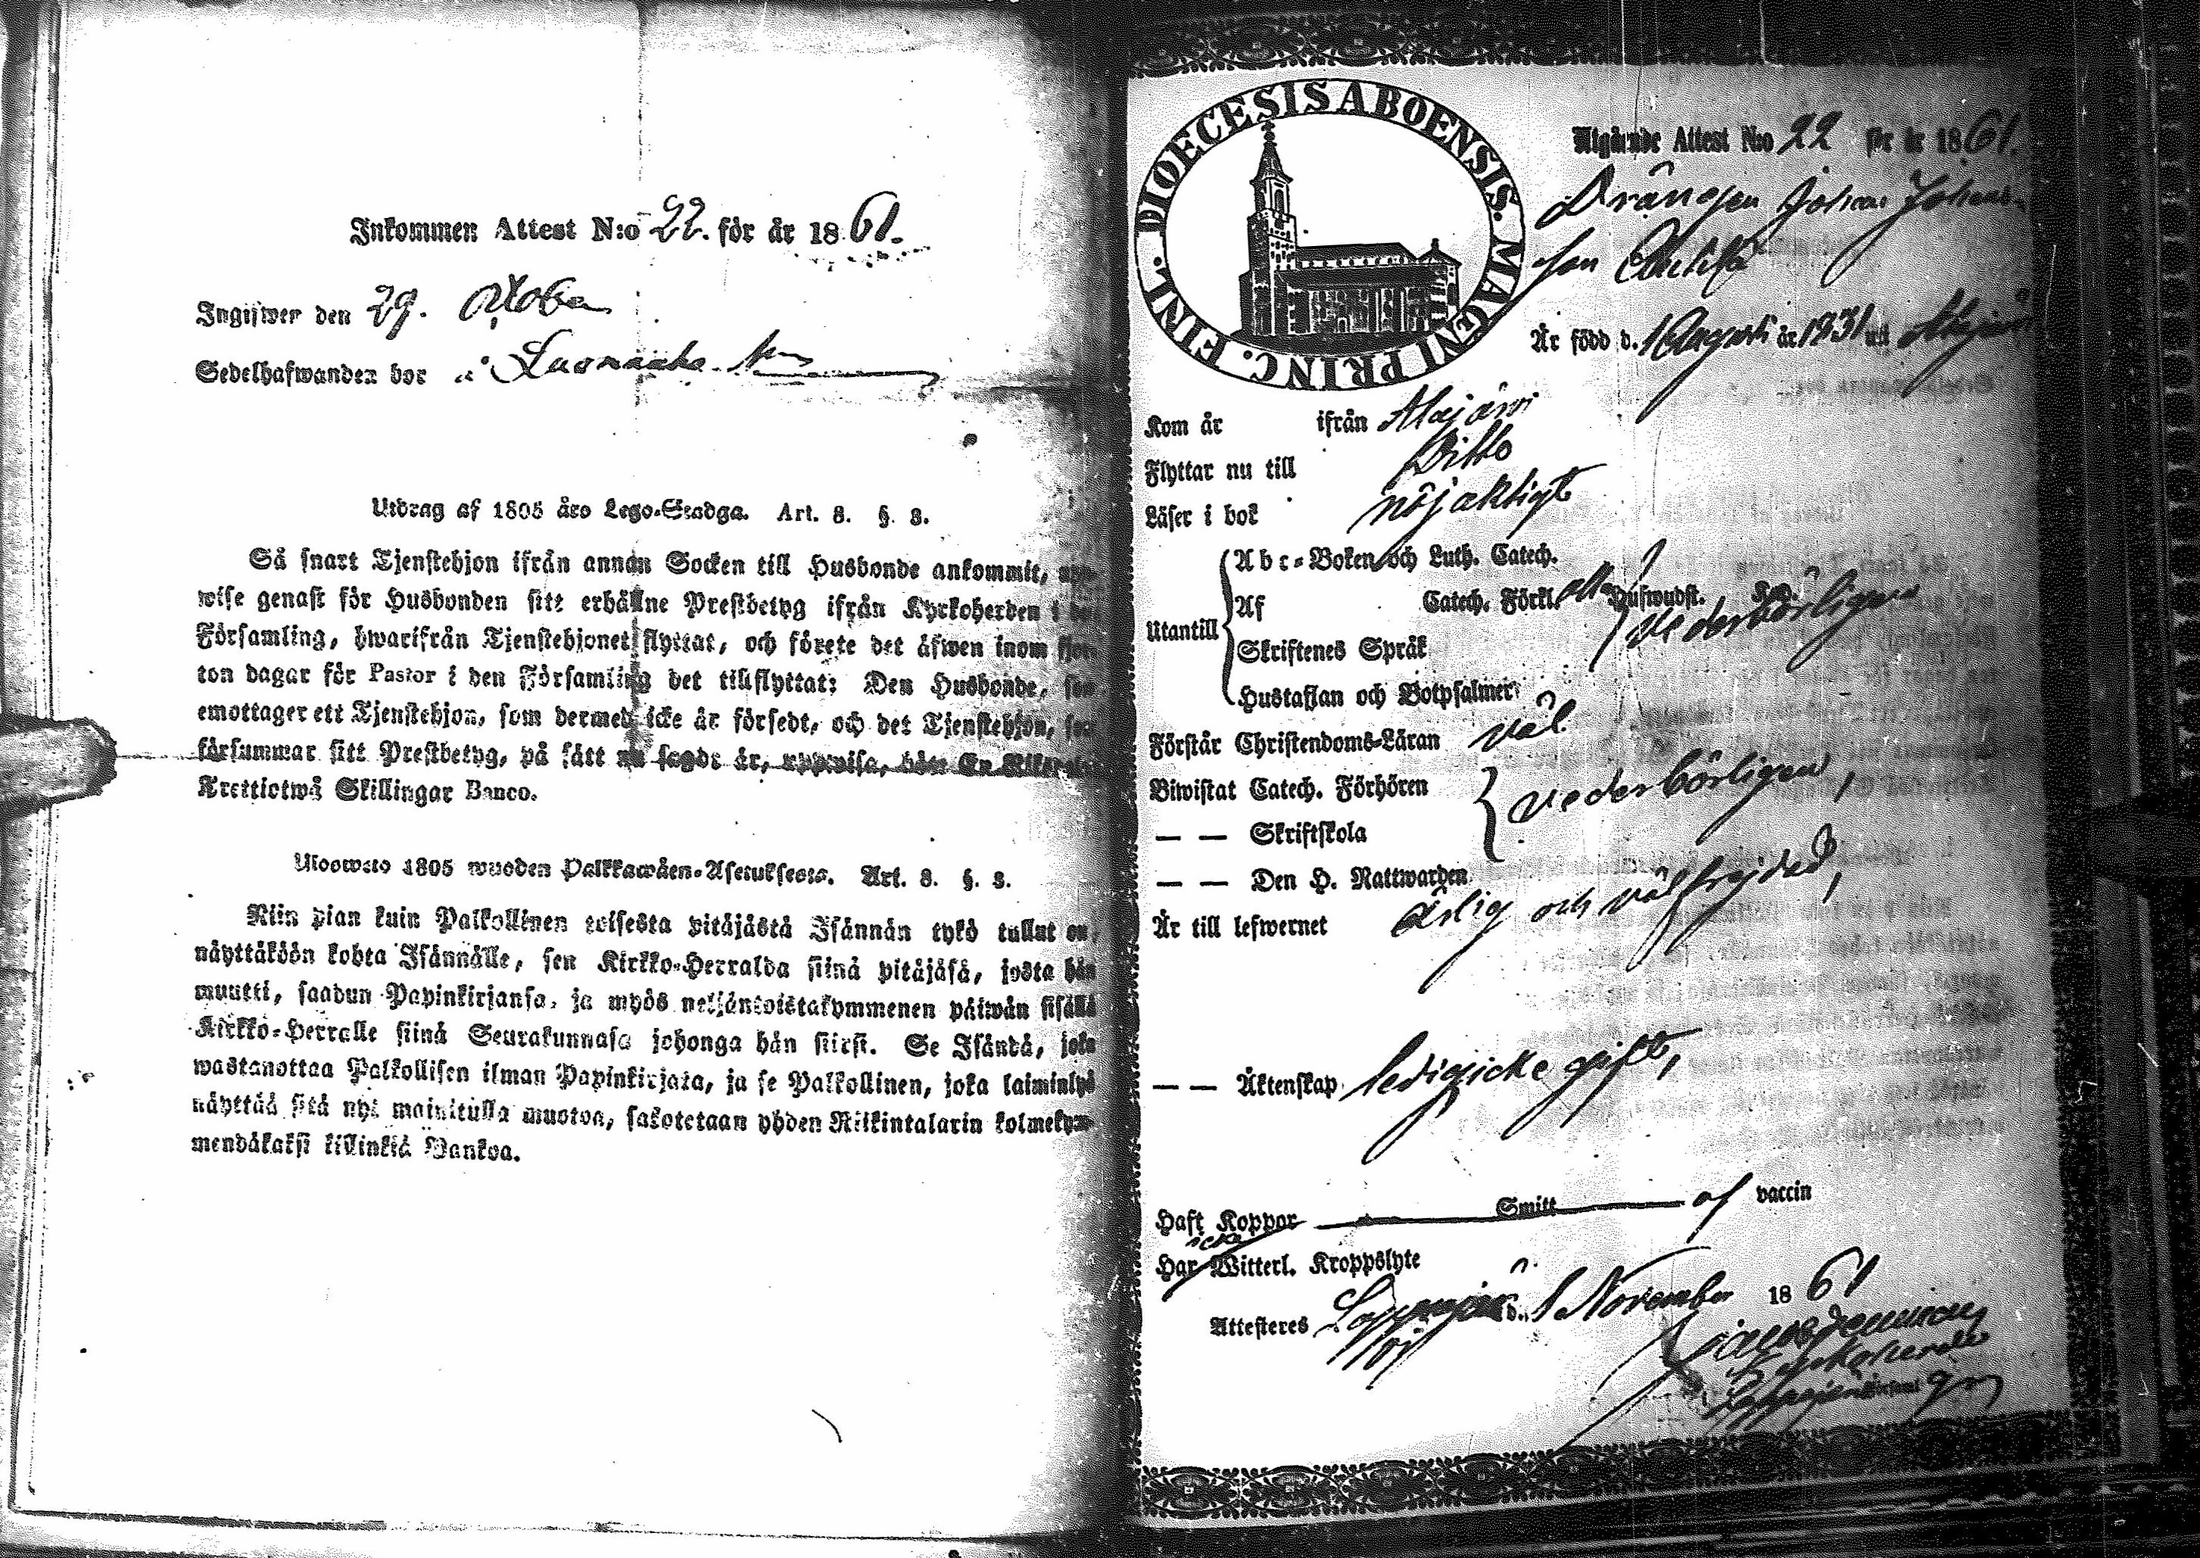 Inkommen Attest N:o 22. för år 1861.
Ingifwen den 29.
Sedelhafwanden bor
Utdrag af 1805 års Lego-Stadga. Art. 3. §. 3.
Så snart Tjenstehjon ifrån annan Socken till Husbonde ankommit,
wise genast för Husbonden sitt erhållne Prestbetyg ifrån Kyrkoherden i
Församling, hwarifrån Tjenstehjonet flyttat, och förete det äfwen inom
ton dagar för Pastor i den Församling det tillflyttat; Den Husbonde,
emottager ett Tjenstehjon, som dermed icke är försedt, och det Tjenstehjon,
försummar sitt Prestbetyg, på sätt nu sagdt är, uppwisa, böte En
Trettiotwå Skillingar Banco.
Ulosweto 1805 wuoden Palkkawäen-Asetuksesta. Art. 3. §. 3.
Niin pian kuin Palkollinen toisesta pitäjästä Isännän tykö tullut on,
näyttäköön kohta Isännälle, sen Kirkko-Herralda siinä pitäjäsä, josta hän
muutti, saadun Papinkirjansa, ja myös neljäntoistakymmenen päiwän sisällä
Kirkko-Herralle siinä Seurakunnasa johonga hän siirsi. Se Isändä, joka
wastanottaa Palkollisen ilman Papinkirjata, ja se Palkollinen, joka laiminlyö
näyttää sitä nyt mainitulla muotoa, sakotetaan yhden Riikintalarin kolmekym-
mendäkaksi killinkiä Bankoa.
DIOECESIS ABOENSIS. MAGNI PRINC. FINL.
Utgående Attest N:o 22 för år 1861.
Drängen Johan Johans-
son
Är född d. 1 Augusti år 1831 uti Alajärvi
Kom år ifrån Alajärvi
Flyttar nu till Ditto
Läser i bok nöjaktigt
Utantill Abc-Boken och Luth. Catech.
Af Catech. Förkl. Hufwudst. Kap.
vederbörligen
Skriftenes Språk
Hustaflan och Botpsalmer
Förstår Christendoms-Läran väl
Biwistat Catech. Förhören
vederbörligen,
— — Skriftskola
— — Den H. Nattwarden
Är till lefwernet ärlig och välfrejdad,
— — Äktenskap ledig icke gift,
Haft Koppor Smitt af vaccin
icke
Har Witterl. Kroppslyte
Attesteres Lappajärvi d. 1 November 1861
Kyrkoherde
Lappajärvi Församl